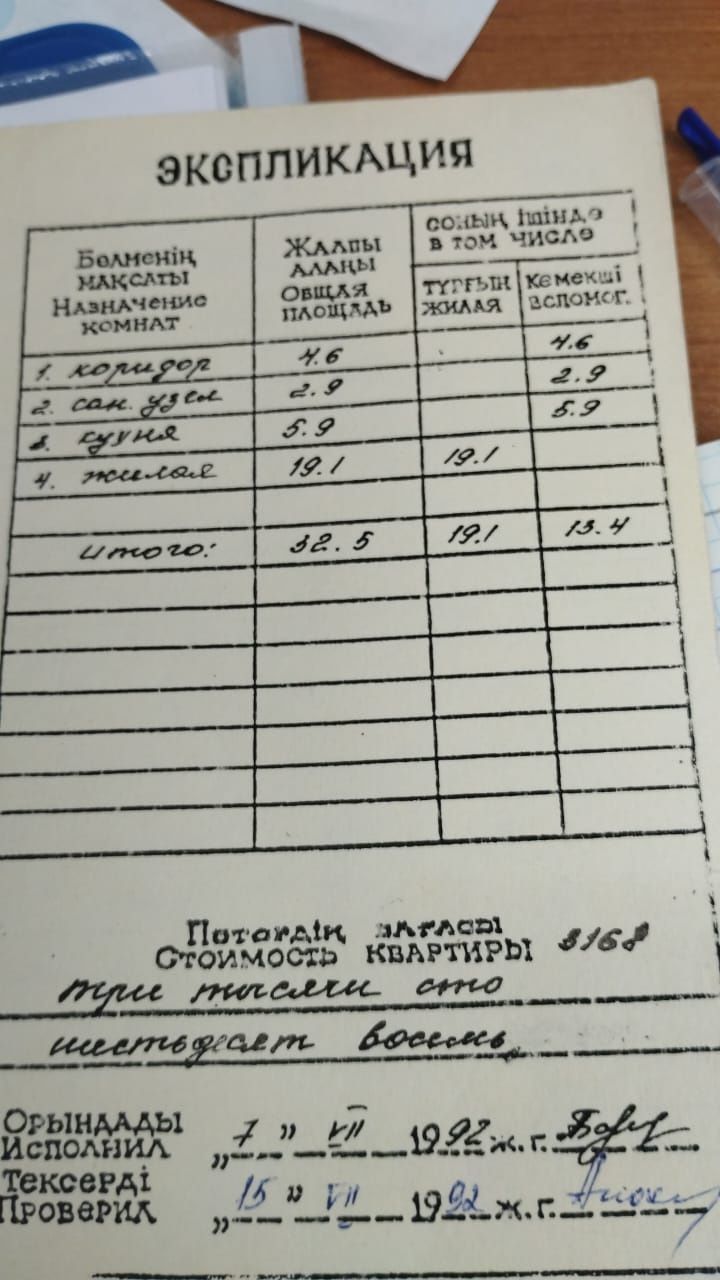 ЭКСПЛИКАЦИЯ
Бөлменің мақсаты Назначение комнат
Жалпы алаңы Общая площадь
соның ішінде в том числе
тұрғын жилая
көмекші вспомог.
1. коридор 4.6 4.6
2. сан. узел 2.9 2.9
3. кухня 5.9 5.9
4. жилая 19.1 19.1
итого: 32.5 19.1 13.4
Пәтердің бағасы
Стоимость квартиры 3168
три тысячи сто
шестьдесят восемь
Орындады
Исполнил „7" VII 1992 ж.г.
Тексерді
Проверил „15" VII 1992 ж.г.